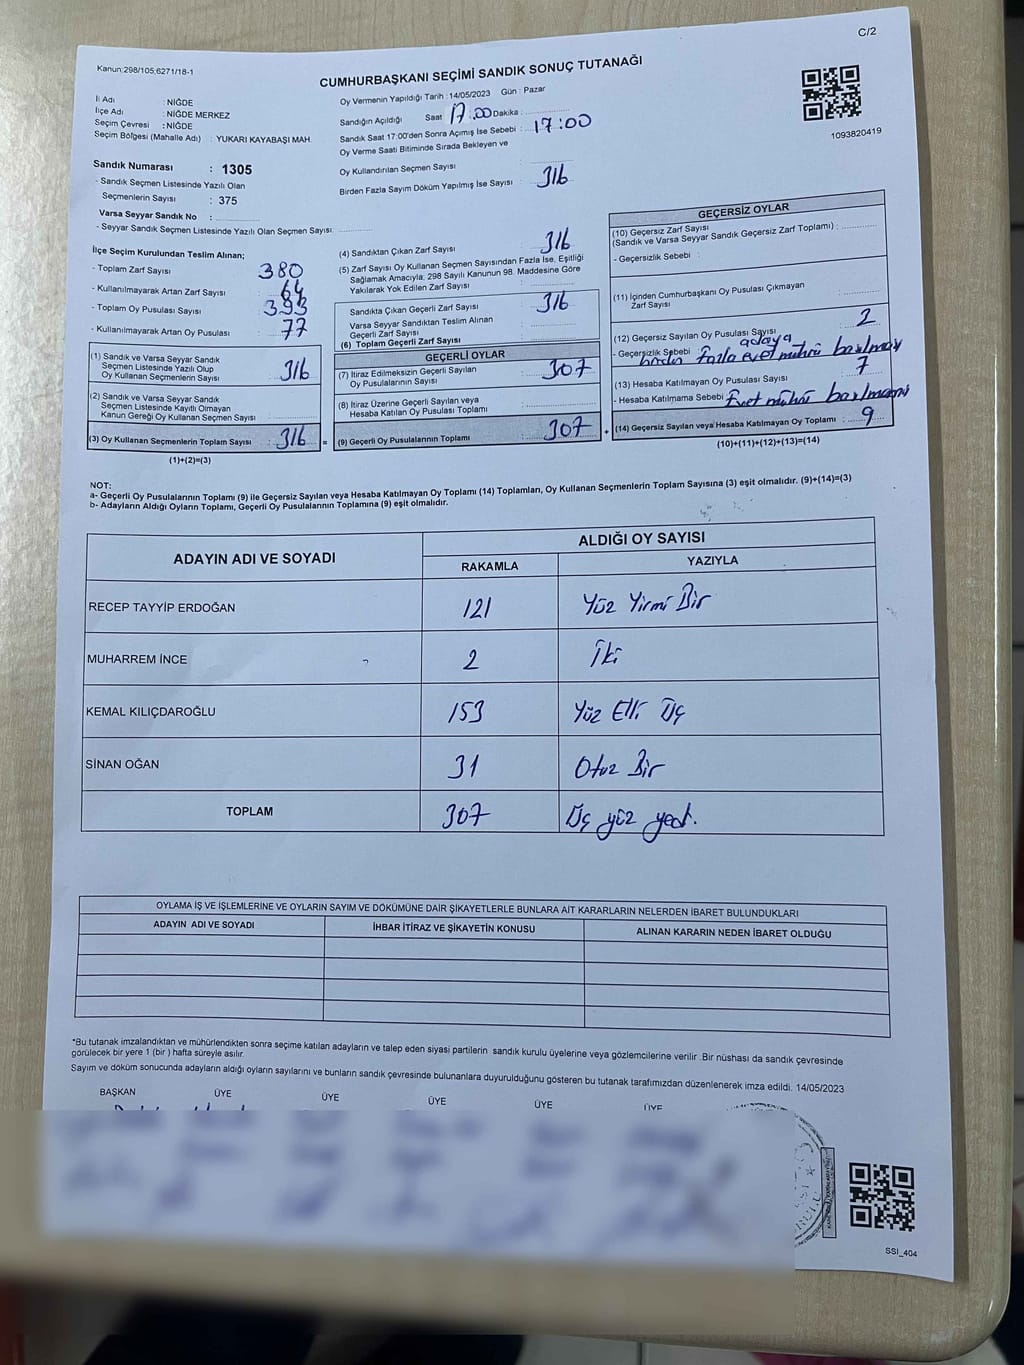 C/2
Kanun:298/105;6271/18-1
CUMHURBAŞKANI SEÇİMİ SANDIK SONUÇ TUTANAĞI
İl Adı : NİĞDE
İlçe Adı : NİĞDE MERKEZ
Seçim Çevresi : NİĞDE
Seçim Bölgesi (Mahalle Adı) : YUKARI KAYABAŞI MAH.
Oy Vermenin Yapıldığı Tarih : 14/05/2023 Gün : Pazar
Sandığın Açıldığı Saat 17.00 Dakika :
Sandık Saat 17:00'den Sonra Açılmış İse Sebebi : 17:00
Oy Verme Saati Bitiminde Sırada Bekleyen ve
Oy Kullandırılan Seçmen Sayısı
Birden Fazla Sayım Döküm Yapılmış İse Sayısı : 316
1093820419
Sandık Numarası : 1305
- Sandık Seçmen Listesinde Yazılı Olan
Seçmenlerin Sayısı : 375
Varsa Seyyar Sandık No :
- Seyyar Sandık Seçmen Listesinde Yazılı Olan Seçmen Sayısı:
İlçe Seçim Kurulundan Teslim Alınan;
- Toplam Zarf Sayısı 380
- Kullanılmayarak Artan Zarf Sayısı : 64
- Toplam Oy Pusulası Sayısı : 393
- Kullanılmayarak Artan Oy Pusulası : 77
(1) Sandık ve Varsa Seyyar Sandık
Seçmen Listesinde Yazılı Olup
Oy Kullanan Seçmenlerin Sayısı : 316
(2) Sandık ve Varsa Seyyar Sandık
Seçmen Listesinde Kayıtlı Olmayan
Kanun Gereği Oy Kullanan Seçmen Sayısı :
(3) Oy Kullanan Seçmenlerin Toplam Sayısı : 316 =
(1)+(2)=(3)
(4) Sandıktan Çıkan Zarf Sayısı : 316
(5) Zarf Sayısı Oy Kullanan Seçmen Sayısından Fazla İse, Eşitliği
Sağlamak Amacıyla, 298 Sayılı Kanunun 98. Maddesine Göre
Yakılarak Yok Edilen Zarf Sayısı :
Sandıkta Çıkan Geçerli Zarf Sayısı : 316
Varsa Seyyar Sandıktan Teslim Alınan
Geçerli Zarf Sayısı :
(6) Toplam Geçerli Zarf Sayısı :
GEÇERLİ OYLAR
(7) İtiraz Edilmeksizin Geçerli Sayılan
Oy Pusulalarının Sayısı : 307
(8) İtiraz Üzerine Geçerli Sayılan veya
Hesaba Katılan Oy Pusulası Toplamı :
(9) Geçerli Oy Pusulalarının Toplamı : 307 +
GEÇERSİZ OYLAR
(10) Geçersiz Zarf Sayısı
(Sandık ve Varsa Seyyar Sandık Geçersiz Zarf Toplamı) :
- Geçersizlik Sebebi :
(11) İçinden Cumhurbaşkanı Oy Pusulası Çıkmayan
Zarf Sayısı :
(12) Geçersiz Sayılan Oy Pusulası Sayısı : 2
- Geçersizlik Sebebi : birden fazla adaya evet mührü basılması
(13) Hesaba Katılmayan Oy Pusulası Sayısı : 7
- Hesaba Katılmama Sebebi : Evet mührü basılmamış
(14) Geçersiz Sayılan veya Hesaba Katılmayan Oy Toplamı : 9
(10)+(11)+(12)+(13)=(14)
NOT:
a- Geçerli Oy Pusulalarının Toplamı (9) ile Geçersiz Sayılan veya Hesaba Katılmayan Oy Toplamı (14) Toplamları, Oy Kullanan Seçmenlerin Toplam Sayısına (3) eşit olmalıdır. (9)+(14)=(3)
b- Adayların Aldığı Oyların Toplamı, Geçerli Oy Pusulalarının Toplamına (9) eşit olmalıdır.
ADAYIN ADI VE SOYADI
ALDIĞI OY SAYISI
RAKAMLA YAZIYLA
RECEP TAYYİP ERDOĞAN 121 Yüz Yirmi Bir
MUHARREM İNCE 2 İki
KEMAL KILIÇDAROĞLU 153 Yüz Elli Üç
SİNAN OĞAN 31 Otuz Bir
TOPLAM 307 Üç yüz yedi
OYLAMA İŞ VE İŞLEMLERİNE VE OYLARIN SAYIM VE DÖKÜMÜNE DAİR ŞİKAYETLERLE BUNLARA AİT KARARLARIN NELERDEN İBARET BULUNDUKLARI
ADAYIN ADI VE SOYADI İHBAR İTİRAZ VE ŞİKAYETİN KONUSU ALINAN KARARIN NEDEN İBARET OLDUĞU
*Bu tutanak imzalandıktan ve mühürlendikten sonra seçime katılan adayların ve talep eden siyasi partilerin sandık kurulu üyelerine veya gözlemcilerine verilir .Bir nüshası da sandık çevresinde
görülecek bir yere 1 (bir ) hafta süreyle asılır.
Sayım ve döküm sonucunda adayların aldığı oyların sayılarını ve bunların sandık çevresinde bulunanlara duyurulduğunu gösteren bu tutanak tarafımızdan düzenlenerek imza edildi. 14/05/2023
BAŞKAN ÜYE ÜYE ÜYE ÜYE ÜYE
SSI_404